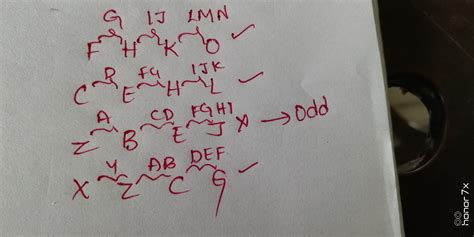 G IJ LMN
F H K O ✓
D FG IJK
C E H L ✓
A CD FGHI
Z B E J X → Odd
Y AB DEF
X Z C G ✓
honor 7x